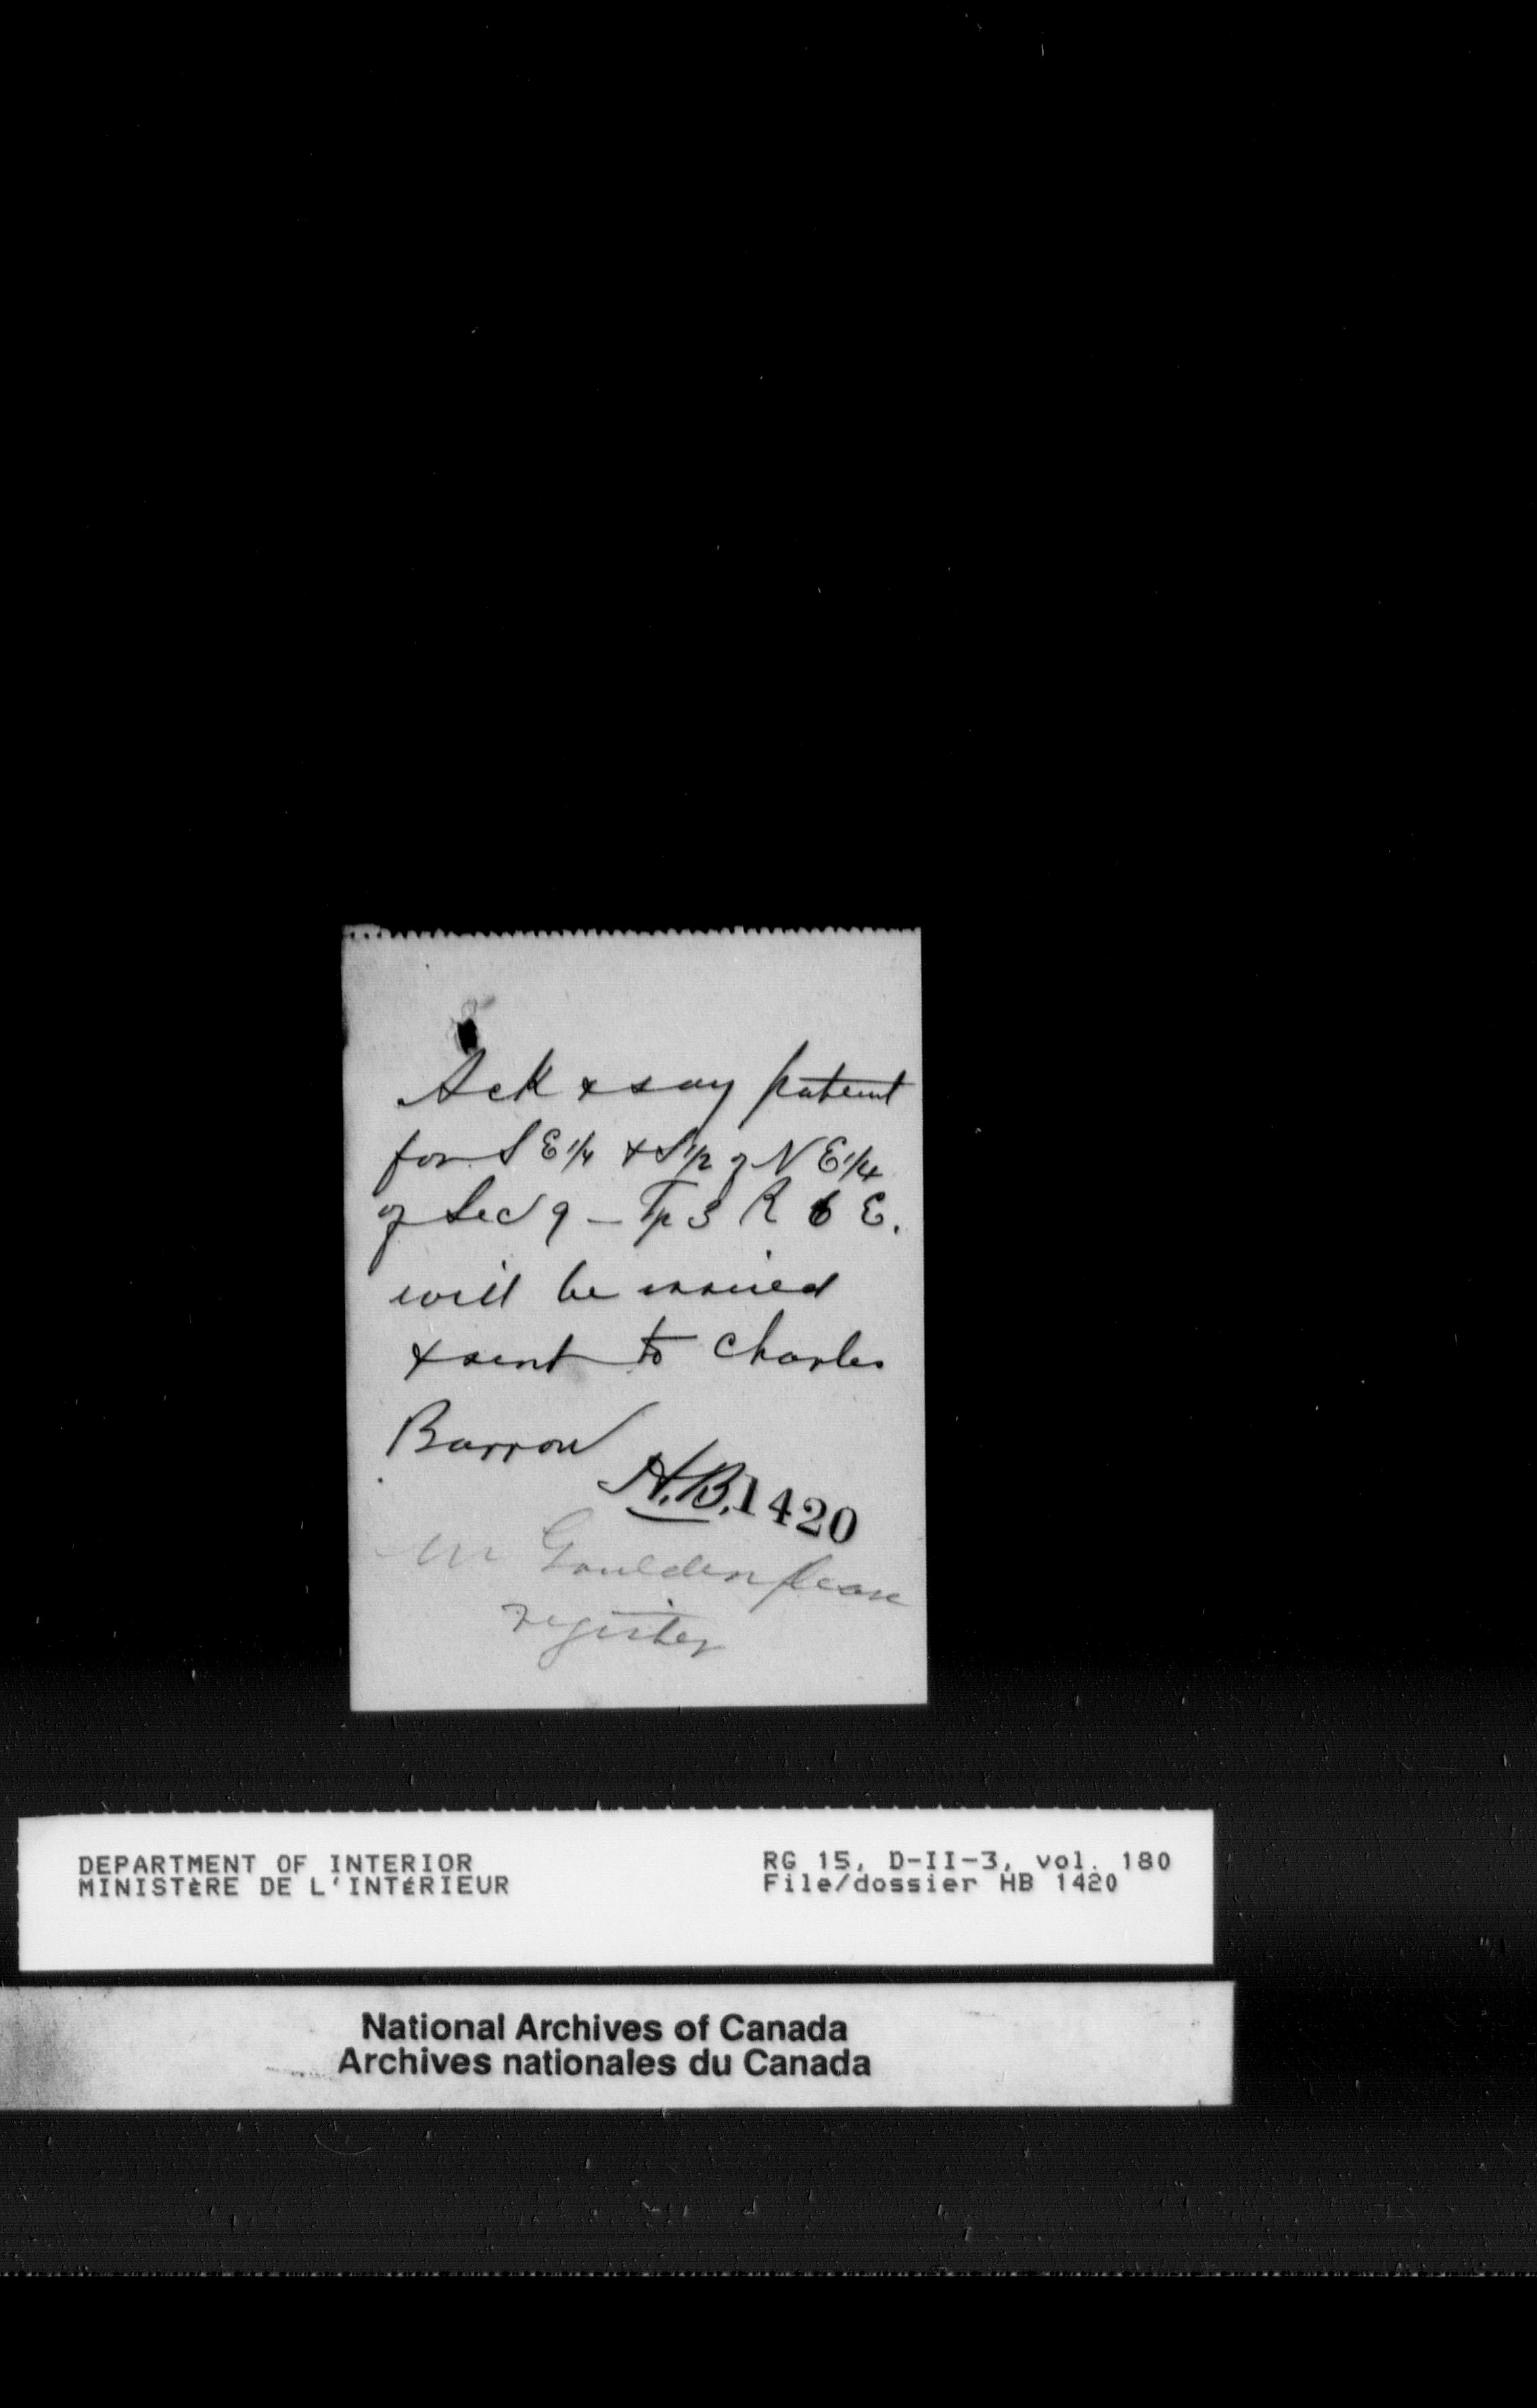 Ack & say patent
for S E 1/4 & S 1/2 of N E 1/4
of Sec 9 - Tp 3 R 6 E.
will be issued
& sent to Charles
Barrow
H.B. 1420
Mr Goulden please
register
DEPARTMENT OF INTERIOR
MINISTÈRE DE L'INTÉRIEUR
RG 15, D-II-3, vol. 180
File/dossier HB 1420
National Archives of Canada
Archives nationales du Canada